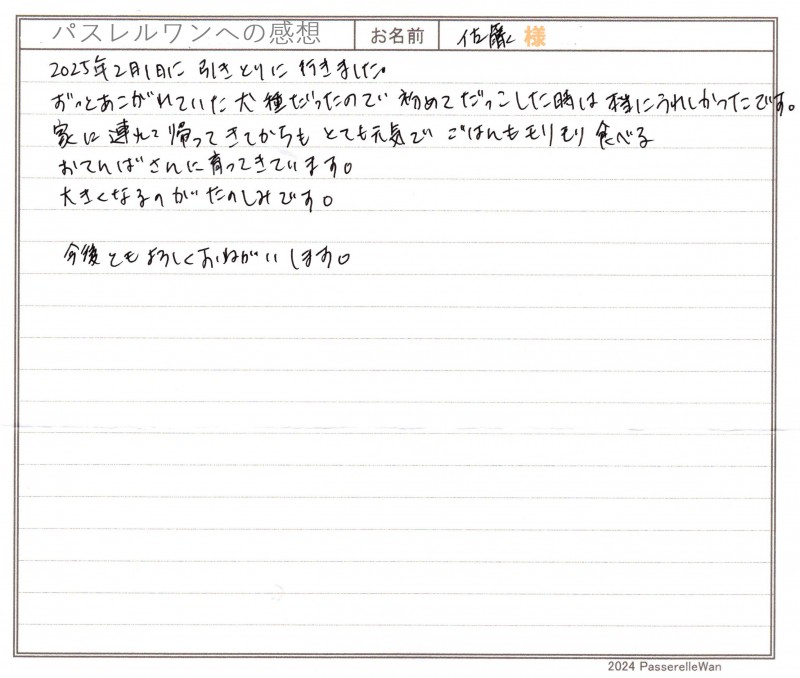 パスレルワンへの感想 お名前 佐藤 様
2025年2月1日に 引きとりに 行きました。
ずっとあこがれていた 犬種だったので 初めて だっこした時は 本当にうれしかったです。
家に 連れて 帰ってきてからも とても元気で ごはんもモリモリ 食べる
おてんばさんに育ってきています。
大きくなるのが たのしみです。
今後ともよろしくおねがいします。
2024 PasserelleWan